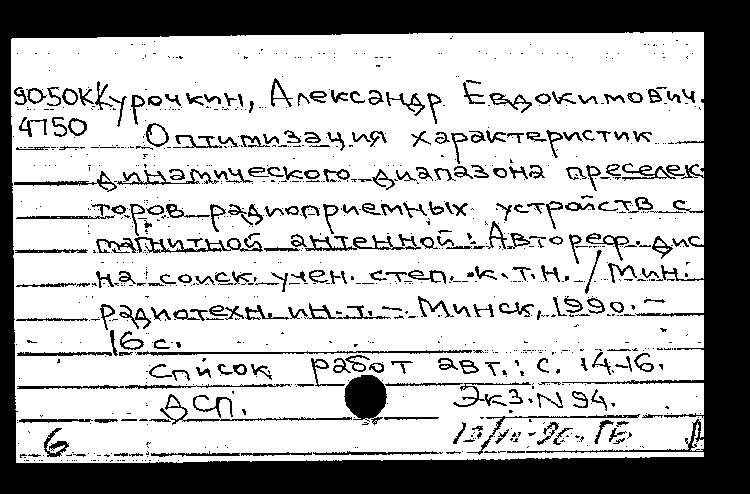 90-50К Курочкин, Александр Евдокимович.
4750 Оптимизация характеристик
динамического диапазона преселек-
торов радиоприемных устройств с
магнитной антенной: Автореф. дис
на соиск. учен. степ. к.т.н. / Мин.
радиотехн. ин-т. - Минск, 1990. -
16 с.
Список работ авт.: с. 14-16.
ДСП. Экз. N 94.
6